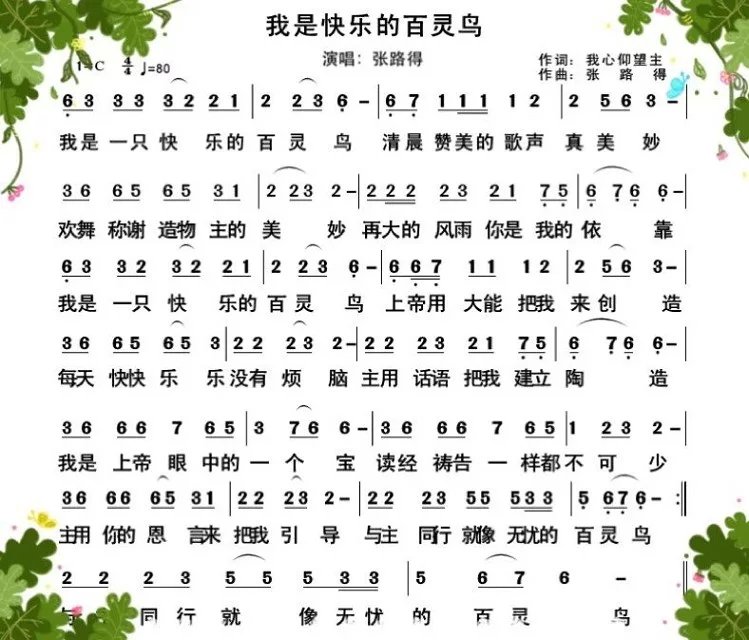 我是快乐的百灵鸟
演唱：张路得
作词：我心仰望主
作曲：张 路 得
1=C 4/4 ♩=80
6 3 3 3 3 2 2 1 | 2 2 3 6 - | 6 7 1 1 1 1 2 | 2 5 6 3 - |
我是一只快 乐的百灵 鸟 清晨 赞美的歌声 真 美 妙
3 6 6 5 6 5 3 1 | 2 2 3 2 - | 2 2 2 2 3 2 1 7 5 | 6 7 6 6 - |
欢舞 称谢 造物 主的 美 妙 再大的 风雨 你是 我的 依 靠
6 3 3 2 3 2 2 1 | 2 2 3 6 - | 6 6 7 1 1 1 2 | 2 5 6 3 - |
我是 一只 快 乐的百灵 鸟 上帝用 大能 把我 来创 造
3 6 6 5 6 5 3 | 2 2 2 3 2 - | 2 2 2 3 2 1 7 5 | 6 7 6 6 |
每天 快快 乐 乐没有 烦 脑 主用 话语 把我 建立 陶 造
3 6 6 6 7 6 5 | 3 7 6 6 - | 2 2 2 3 5 5 3 | 1 2 3 2 - |
我是 上帝 眼 中的一 个 宝 读经 祷告 一 样都不 可 少
3 6 6 6 6 5 3 1 | 2 2 2 3 2 - | 2 2 2 3 5 5 5 3 3 | 5 6 7 6 - :‖
主用 你的 恩 言来 把我 引 导 与主 同行 就像 无忧的 百灵鸟
2 2 2 3 5 5 5 3 3 | 5 6 7 6 - ‖
同行就 像无忧 的 百灵 鸟